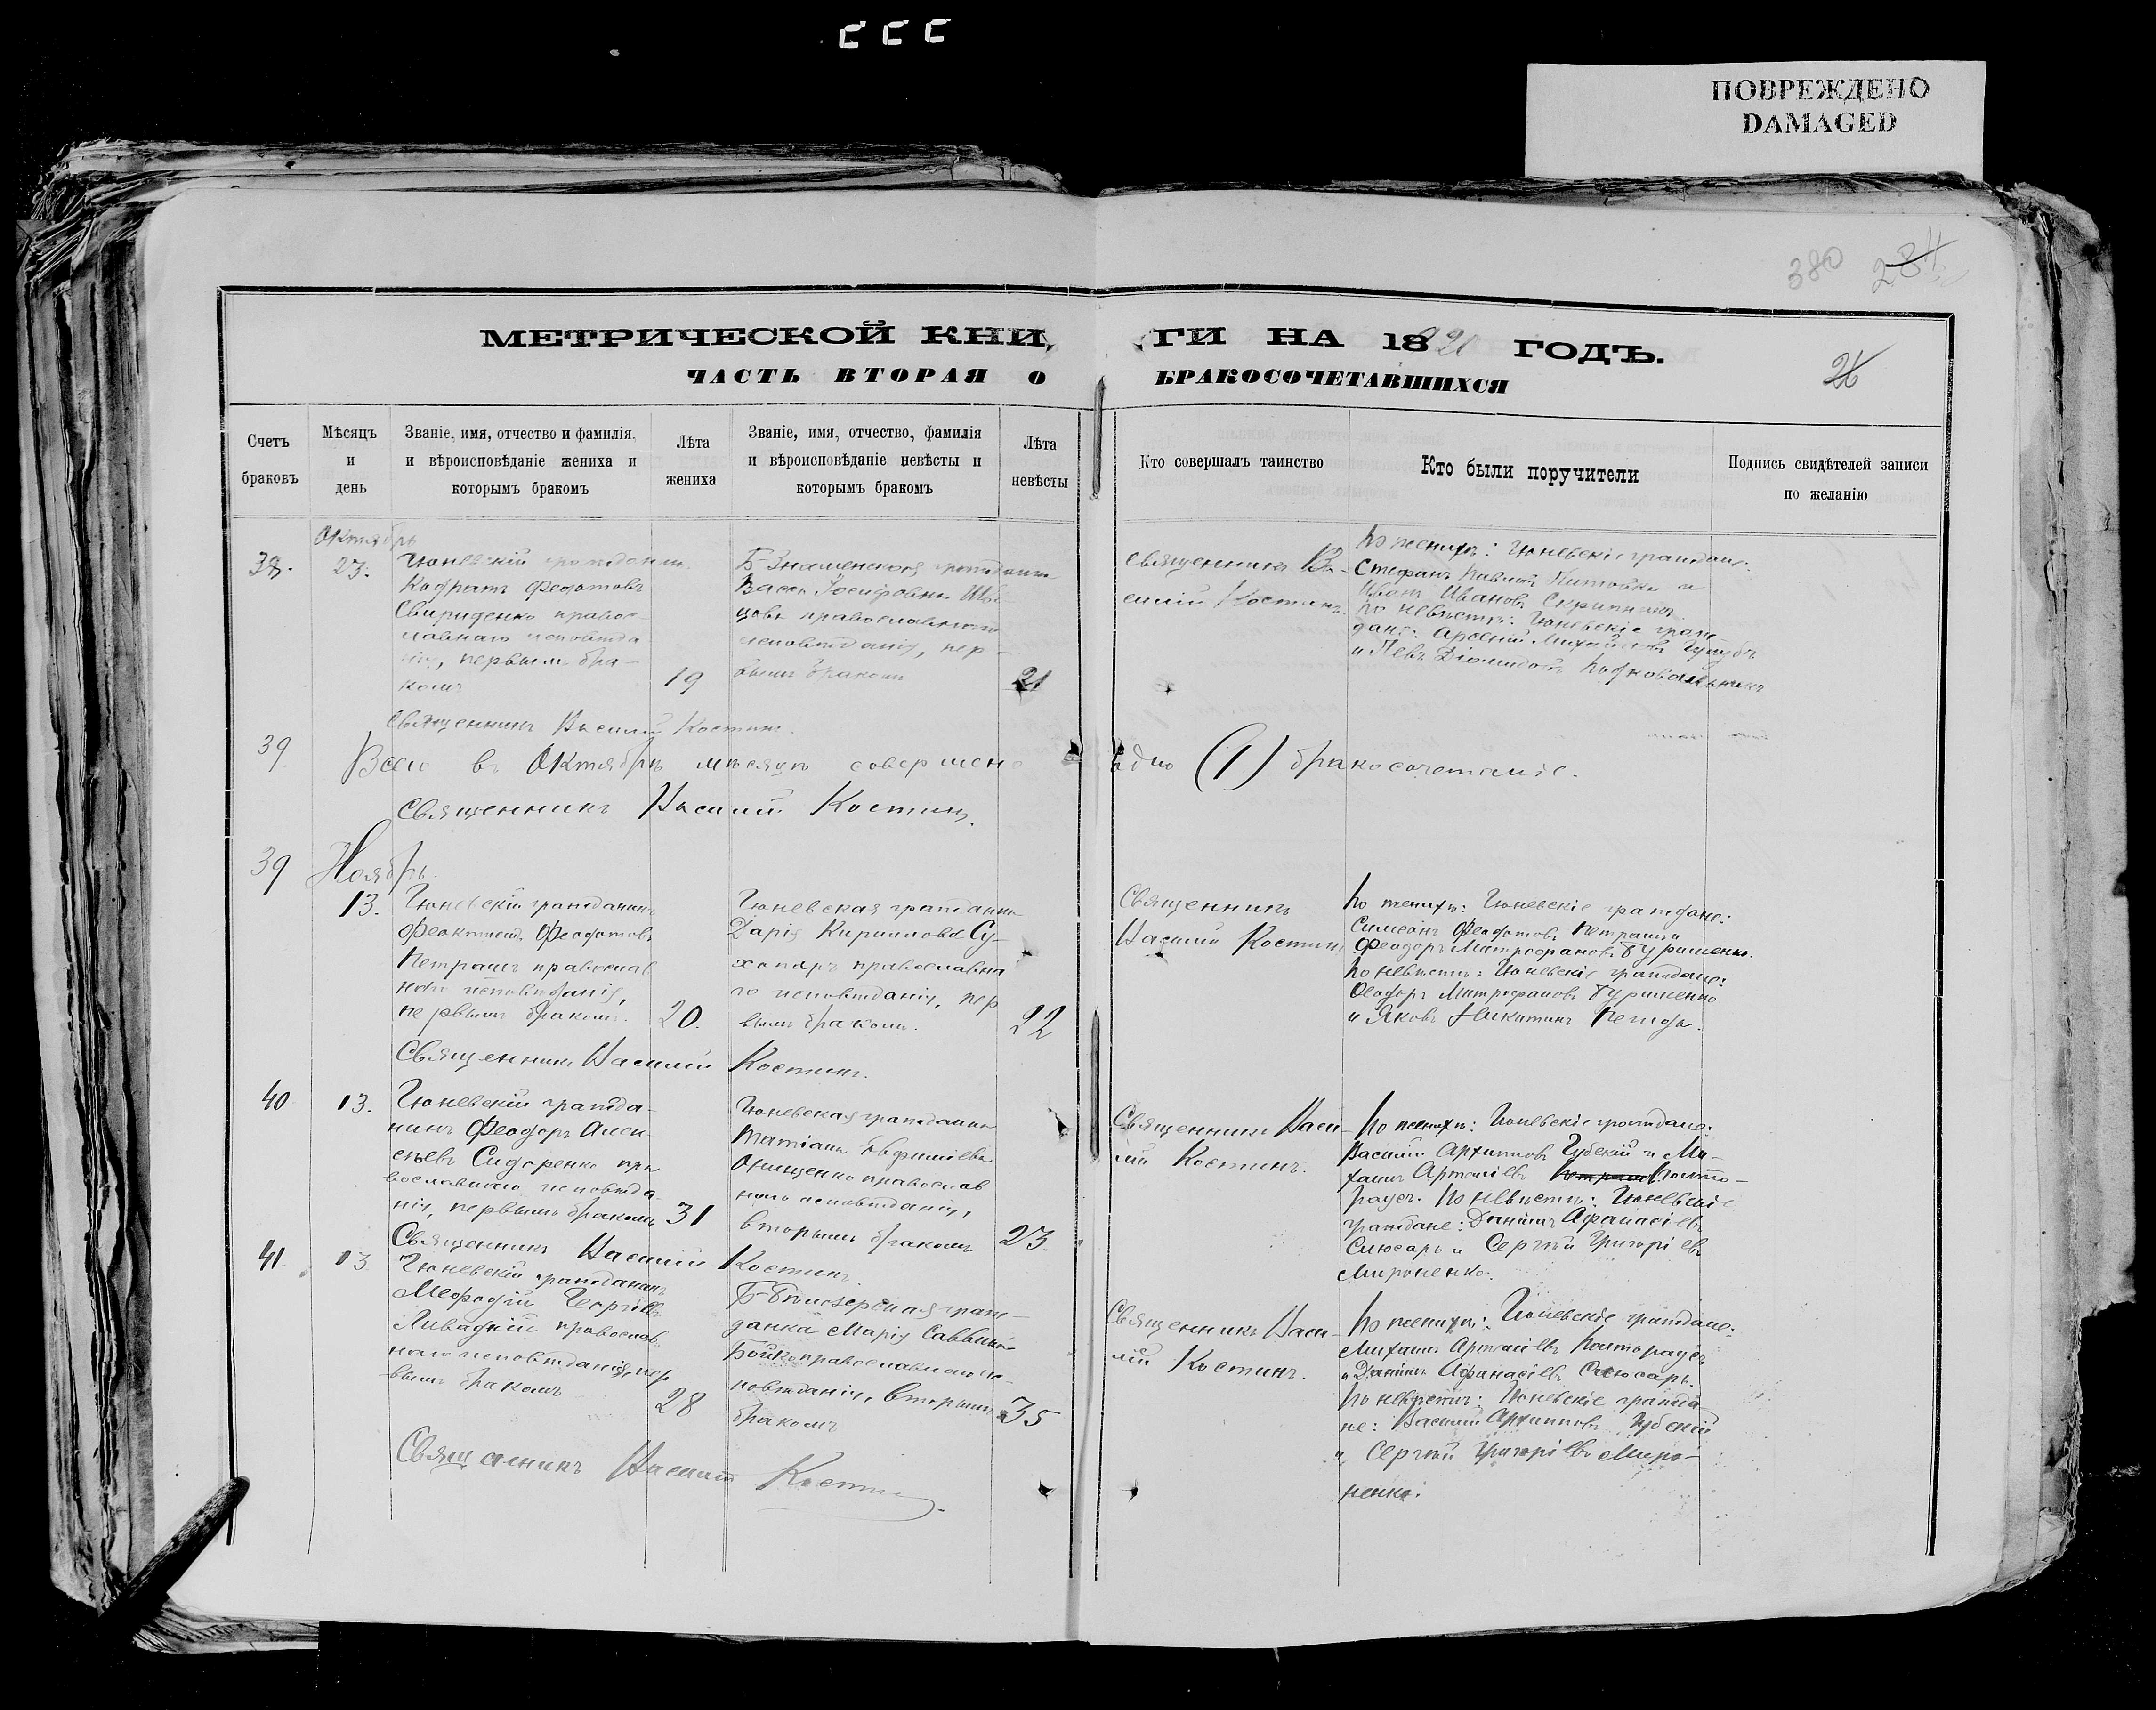 ПОВРЕЖДЕНО
DAMAGED
380 284
МЕТРИЧЕСКОЙ КНИ ГИ НА 18 920 ГОДЪ.
ЧАСТЬ ВТОРАЯ О БРАКОСОЧЕТАВШИХСЯ
26
Счетъ браковъ
Мѣсяцъ и день
Званіе, имя, отчество и фамилія, и вѣроисповѣданіе жениха и которымъ бракомъ
Лѣта жениха
Званіе, имя, отчество, фамилія и вѣроисповѣданіе невѣсты и которымъ бракомъ
Лѣта невѣсты
Кто совершалъ таинство
Кто были поручители
Подпись свидѣтелей записи по желанію
Октябрь
38.
23.
Гюневскій гражданин
Кодратъ Федотовъ
Свириденко правос-
лавнаго исповѣда
нія, первымъ бра-
комъ
19
Б-Знаменская граждан
Васса Іосифовна
православнаго
исповѣданія, пер-
вымъ бракомъ
21
Священникъ Ва-
силій Костинъ.
По женихѣ: Гюневскіе граждане:
Стефанъ Павловъ и
Иванъ Ивановъ Скрипникъ.
По невѣстѣ: Гюневскіе граж-
дане: Арсеній
и Левъ Діомидовъ Подковальникъ
Священникъ Василій Костинъ.
39.
Всего въ Октябрѣ мѣсяцѣ совершено одно (1) бракосочетаніе.
Священникъ Василій Костинъ.
39
Ноябрь.
13.
Гюневскій гражданинъ
Феоктистъ Феодотовъ
Петрашъ православ
наго исповѣданія,
первымъ бракомъ.
20.
Гюневская гражданка
Дарія Кириллова Су-
хопаръ православна
го исповѣданія, пер
вымъ бракомъ.
22
Священникъ
Василій Костинъ
По женихѣ: Гюневскіе граждане:
Симеонъ Феодотовъ Петрашъ и
Феодоръ Митрофановъ Буряченко.
По невѣстѣ: Гюневскіе граждане:
Феодоръ Митрофановъ Буряченко
и Яковъ Никитинъ
Священникъ Василій Костинъ.
40
13.
Гюневскій гражда-
нинъ Феодоръ Алек-
сѣевъ Сидоренко пра
вославнаго исповѣда-
нія, первымъ бракомъ
31
Гюневская гражданка
Татіана Евфиміева
Онищенко православ
наго исповѣданія,
вторымъ бракомъ
23.
Священникъ Васи-
лій Костинъ.
По женихѣ: Гюневскіе граждане:
Василій Архиповъ Губскій и Ми-
хаилъ Артеміевъ Полто-
рацкій. По невѣстѣ: Гюневскіе
граждане: Даніилъ Афанасіевъ
Слюсарь и Сергѣй Григоріевъ
Мироненко.
Священникъ Василій Костинъ.
41.
13
Гюневскій гражданинъ
Мефодій Георгіевъ
Ливадній православ-
наго исповѣданія, пер
вымъ бракомъ
28
Б-Бѣлозерская граж-
данка Марія Саввина
Бойко православнаго ис-
повѣданія, вторымъ
бракомъ
35
Священникъ Васи-
лій Костинъ.
По женихѣ: Гюневскіе граждане:
Михаилъ Артеміевъ
и Даніилъ Афанасіевъ Слюсарь.
По невѣстѣ: Гюневскіе гражда
не: Василій Архиповъ Губскій
и Сергѣй Григоріевъ Миро-
ненко.
Священникъ Василій Костинъ.